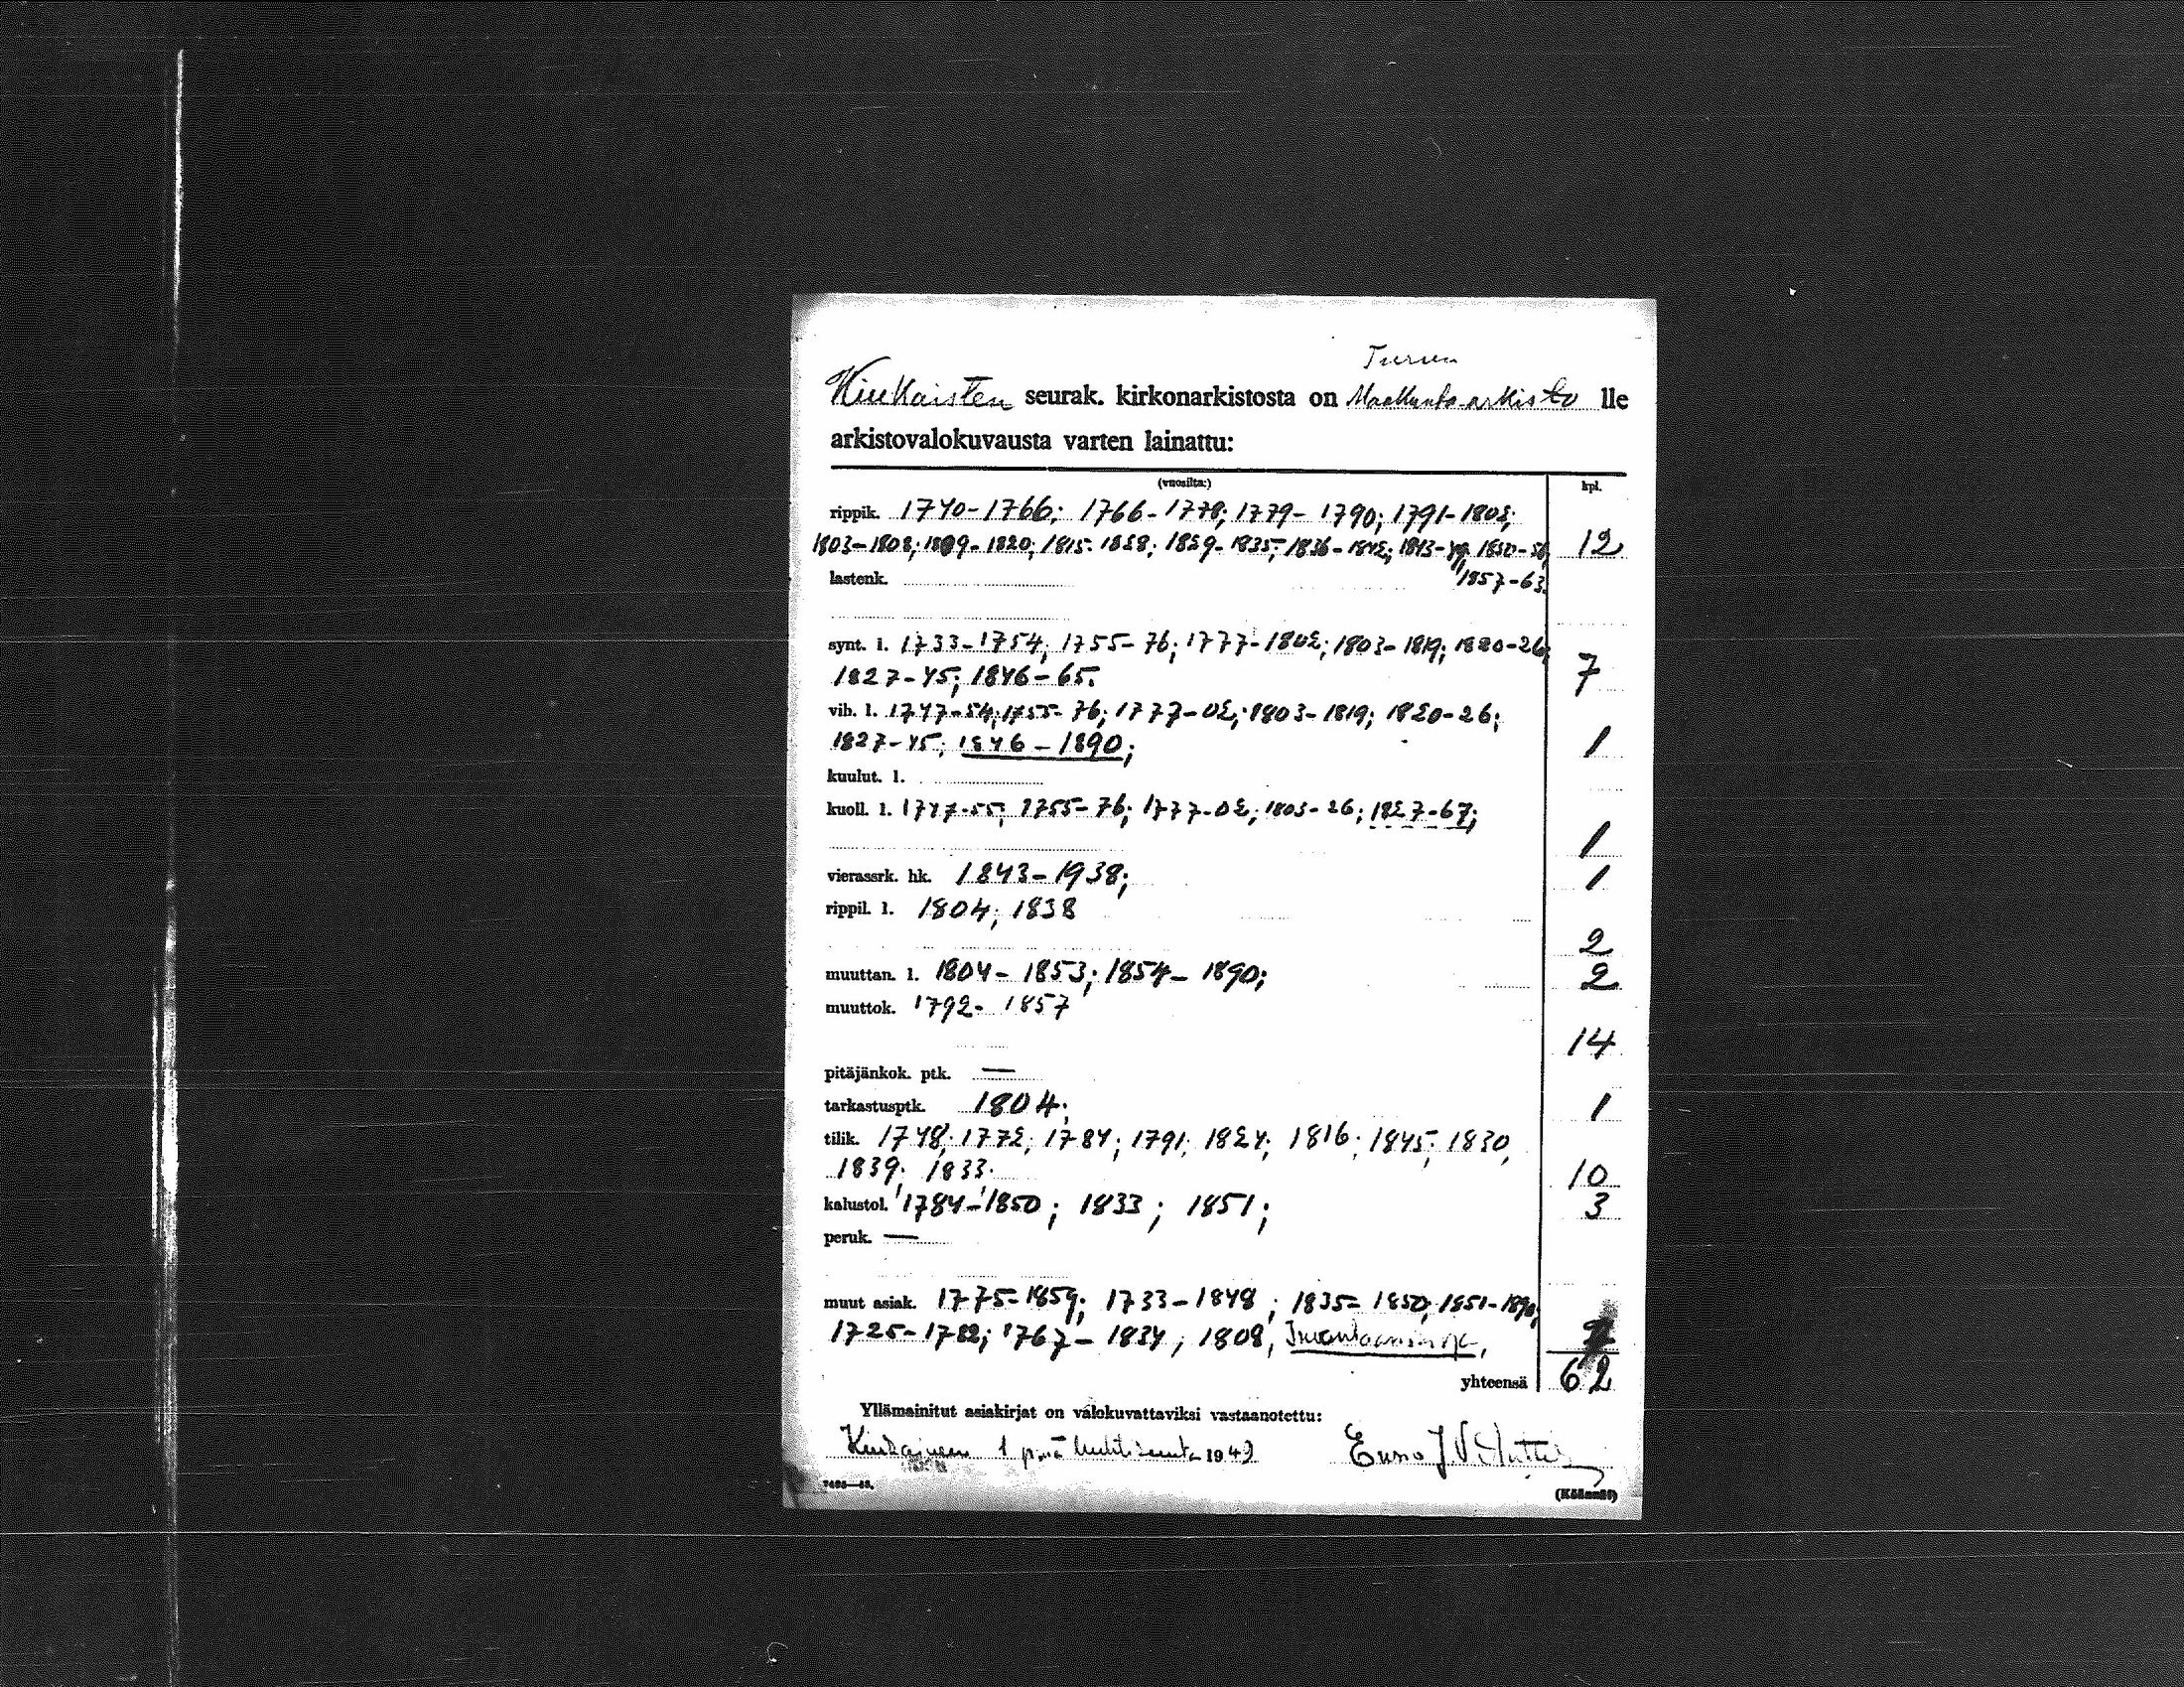 Turun
Kiukaisten seurak. kirkonarkistosta on Maakunta-arkisto lle
arkistovalokuvausta varten lainattu:
(vuosilta:) kpl.
rippik. 1740-1766; 1766-1778; 1779-1790; 1791-1802;
1803-1808; 1809-1820; 1815-1828; 1829-1835; 1836-1842; 1843-49; 1850-56, 12
lastenk. 1857-63.
synt. l. 1733-1754; 1755-76; 1777-1802; 1803-1819; 1820-26;
1827-45; 1846-65. 7
vih. l. 1747-54; 1755-76; 1777-02; 1803-1819; 1820-26;
1827-45; 1846-1890; 1
kuulut. l.
kuoll. l. 1747-55; 1755-76; 1777-02; 1803-26; 1827-67;
1
vierassrk. hk. 1843-1938; 1
rippil. l. 1804; 1838
2
muuttan. l. 1804-1853; 1854-1890; 2
muuttok. 1792-1857
14
pitäjänkok. ptk. —
tarkastusptk. 1804; 1
tilik. 1748; 1772; 1784; 1791; 1824; 1816; 1845; 1830,
1839; 1833. 10
kalustol. 1784-1850; 1833; 1851; 3
peruk. —
muut asiak. 1775-1859; 1733-1848; 1835-1850; 1851-1890;
1725-1782; 1767-1834; 1808,
yhteensä 62
Yllämainitut asiakirjat on valokuvattaviksi vastaanotettu:
Kiukainen 1 p:nä huhtikuuta 1949
(Käännä!)